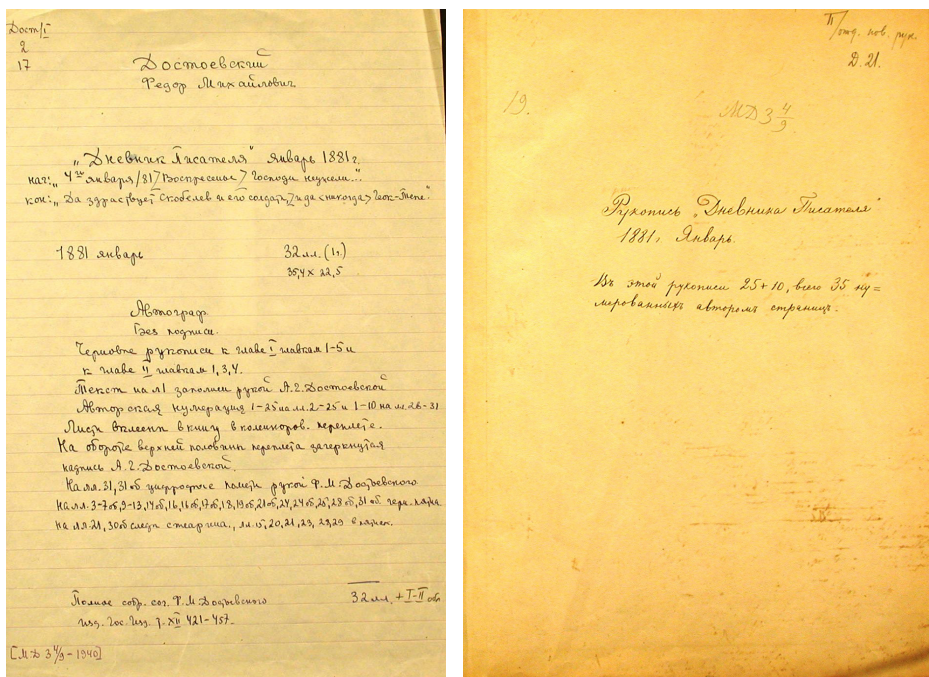 Дост/I
2
17
Достоевский
Федор Михайлович
„Дневник Писателя" январь 1881 г.
нач: „4го января/81/Воскресенье> Господи неужели..."
кон: „Да здраствует Скобелев и его солдаты, и да <никогда> Геок-Тепе."
1881 январь 32 лл. (1,)
35,4 x 22,5
Автограф.
Без подписи.
Черновые рукописи к главе I главкам 1-5 и
к главе II главкам 1, 3, 4.
Текст на л 1 записан рукой А.Г. Достоевской
Авторская нумерация 1-25 на лл. 2-25 и 1-10 на лл. 26-31
Листы вклеены в книгу в коленкоров. переплете.
На обороте верхней половины переплета зачеркнутая
надпись А.Г. Достоевской.
На лл. 31, 31 об цифровые пометы рукой Ф.М. Достоевского
На лл. 3-7 об, 9-13, 14 об, 16, 16 об, 17 об, 18, 19 об, 21 об, 24, 24 об, 25, 28 об, 31 об черн. пятна
на лл. 21, 30 об следы стеарина, лл. 15, 20, 21, 23, 28, 29 в пятнах.
Полное собр. соч. Ф.М. Достоевского
изд. Гос. Изд. т. XII 421-457.
32 лл. + I-II обл
[М.Д 3 4/9 - 1940]
II/отд. нов. рук.
Д. 21.
19.
МД 3 4/9
Рукопись „Дневника Писателя"
1881, Январь.
Въ этой рукописи 25+10, всего 35 ну=
мерованныхъ авторомъ страницъ.